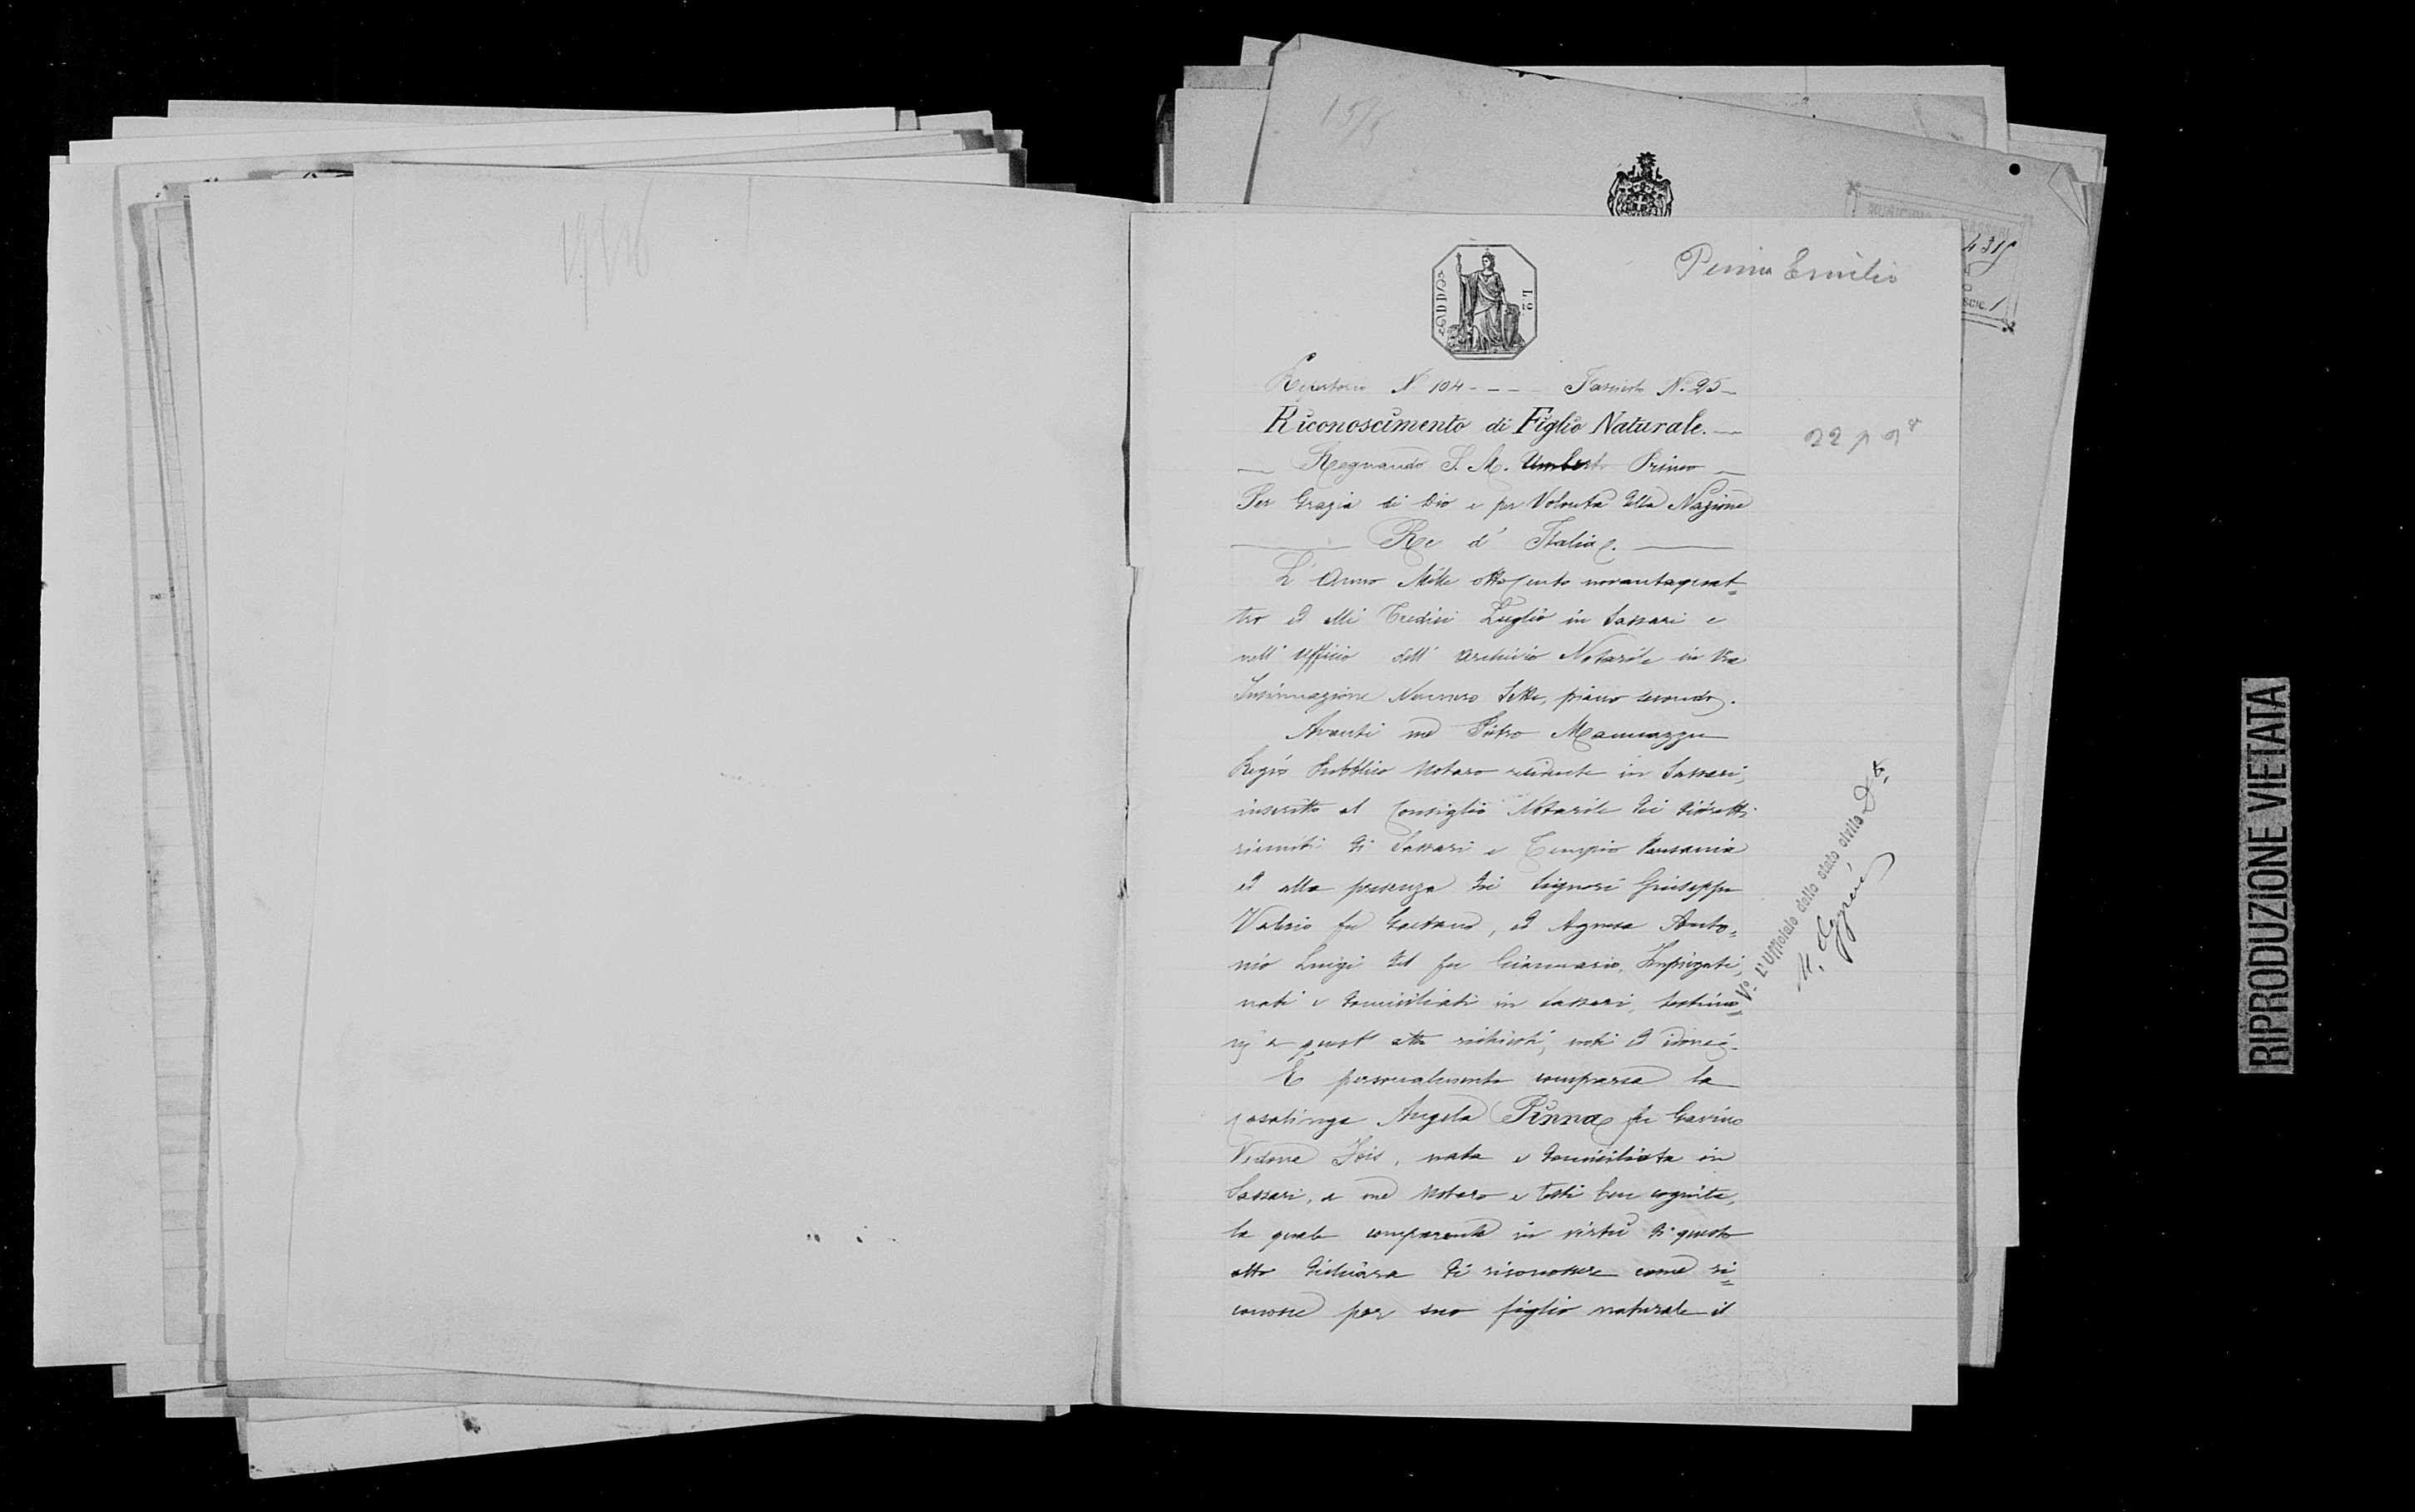 15/5
Pinna Emilio
Repertorio N. 104 - - - - N. 25 -
Riconoscimento di Figlio Naturale. —
— Regnando S. M. Umberto Primo —
Per Grazia di Dio e per Volontà della Nazione
Re d' Italia.
L' Anno Mille ottocento novantaquat=
tro ed alli Tredici Luglio in Sassari e
nell' Ufficio dell' Archivio Notarile in Via
Insinuazione Numero Sette, piano secondo.
Avanti me Pietro Mannazzu
Regio Pubblico Notaro residente in Sassari,
inscritto al Consiglio Notarile dei distretti
riuniti di Sassari e Tempio Pausania
ed alla presenza dei Signori Giuseppe
Valerio fu Gaetano, ed Agnesa Anto=
nio Luigi del fu Giannario, Impiegati,
nati e domiciliati in Sassari, testimo=
nj a quest' atto richiesti, noti ed idonei.
E personalmente comparsa la
casalinga Angela Pinna fu Gavino
Vedova Fois, nata e domiciliata in
Sassari, a me Notaro e testi ben cognita,
la quale comparente in virtù di questo
atto dichiara di riconoscere come ri=
conosce per suo figlio naturale il
V.° L'Ufficiale dello stato civile
RIPRODUZIONE VIETATA